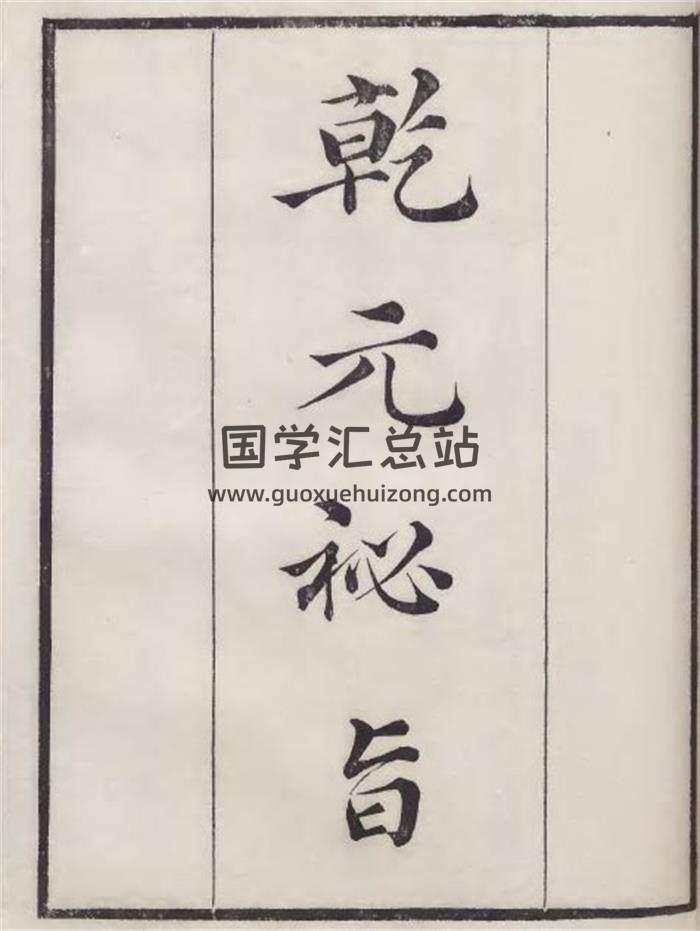 乾元祕旨
国学汇总站
www.guoxuehuizong.com